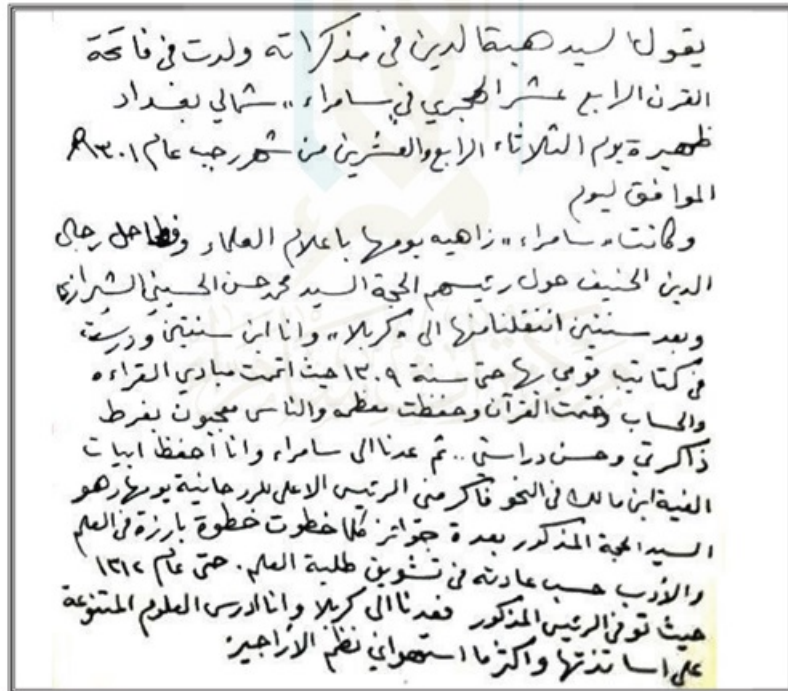 يقول السيد هبة الدين في مذكراته ولدت في فاتحة
القرن الرابع عشر الهجري في سامراء ،، شمالي بغداد
ظهيرة يوم الثلاثاء الرابع والعشرين من شهر رجب عام ١٣٠١هـ
الموافق ليوم
وكانت ،، سامراء ،، زاهيه يومها باعلام العلماء وفطاحل رجال
الدين الحنيف حول رئيسهم الحجة السيد محمد حسن الحسيني الشيرازي
وبعد سنتين انتقلنا منها الى ،، كربلا ،، وانا ابن سنتين ودرست
في كتاتيب قومي بها حتى سنة ١٣٠٩ حيث اتممت مبادي القراءه
والحساب وختمت القرآن وحفظت معظمه والناس معجبون بفرط
ذاكرتي وحسن دراستي .. ثم عدنا الى سامراء وانا احفظ ابيات
الفية ابن مالك في النحو فاكرمني الرئيس الاعلى للروحانية يومها وهو
السيد الحجة المذكور بعدة جوائز كلما خطوت خطوة بارزة في العلم
والأدب حسب عادته في تشويق طلبة العلم . حتى عام ١٣١٢
حيث توفى الرئيس المذكور فعدنا الى كربلا وانا ادرس العلوم المتنوعة
على اساتذتها واكثر ما استهواني نظم الأراجيز